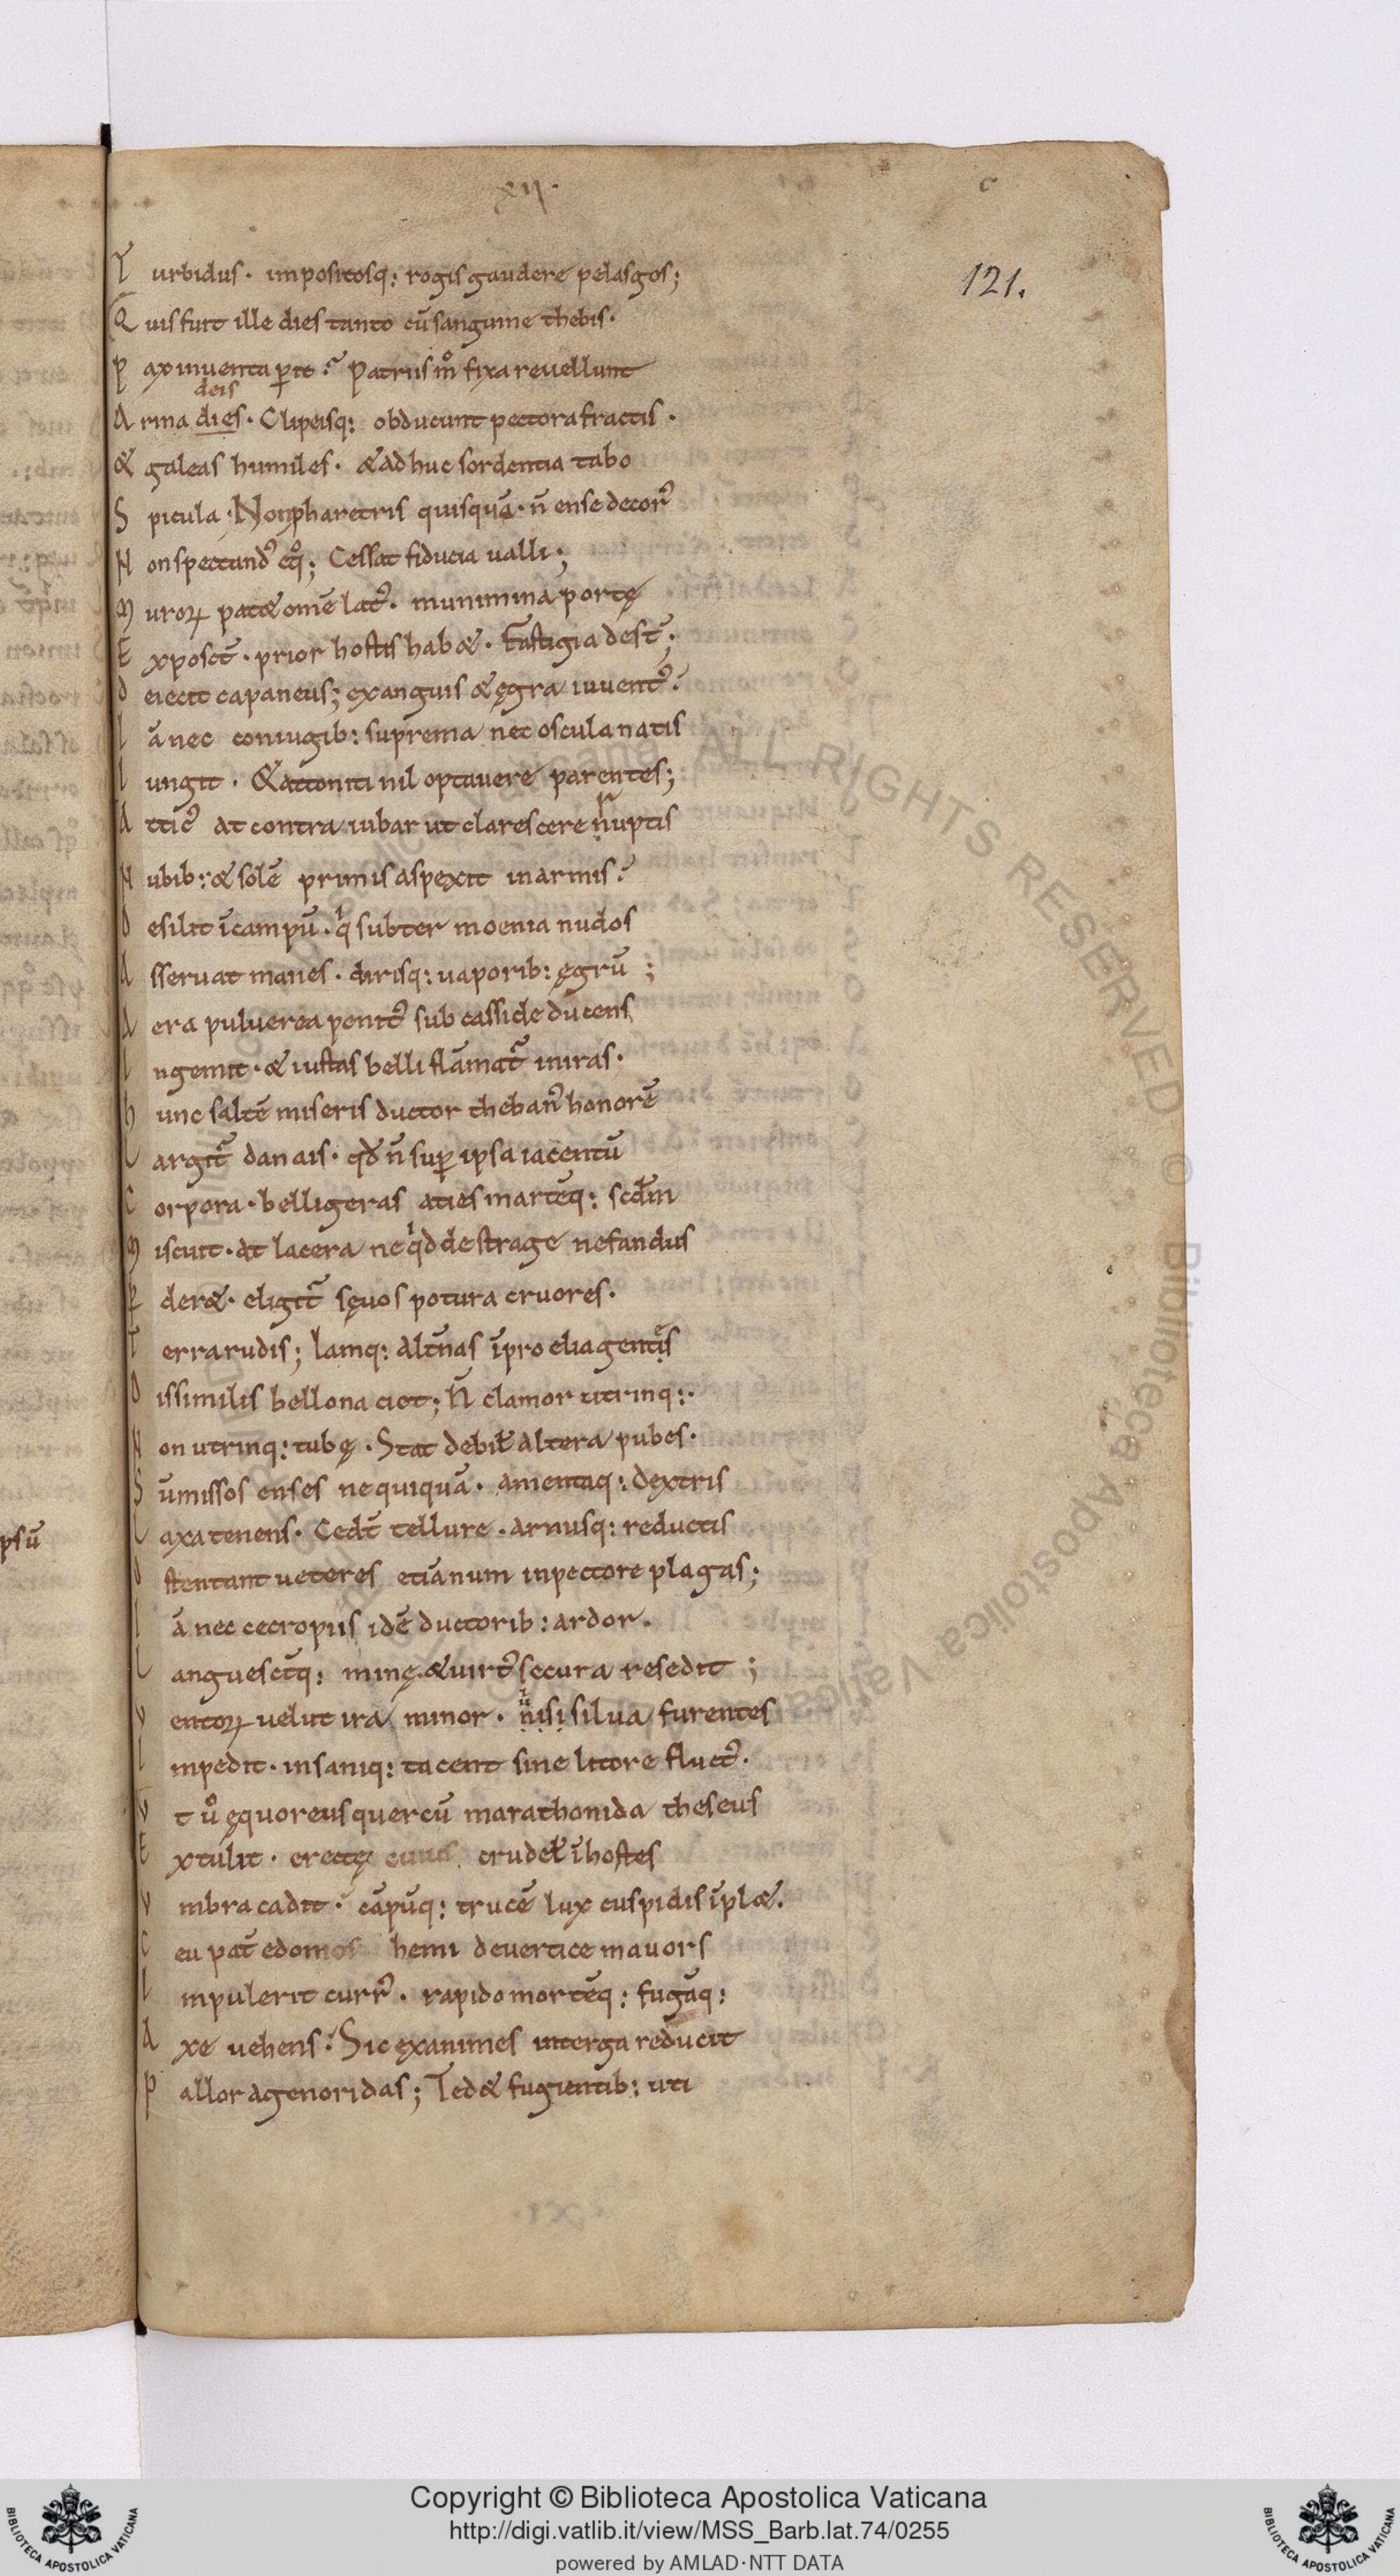 xii.
c
121.
T urbidus. impositosq: rogis gaudere pelasgos;
Q uis fuit ille dies tanto cū sanguine thebis.
P ax inuenta ꝑit? Patriis m̊ fixa reuellunt
deis
A rma dies. Clipeisq: obducunt pectora fractis.
& galeas humiles. & ad huc sordentia tabo
S picula. Non pharetris quisquā. n̄ ense decor᷒
N on spectand᷒ eq̊; Cessat fiducia ualli;
M uroꝝ pat& om̄e lat᷒. munimina portę
E xposct̄. prior hostis hab&. Fastigia dest̄;
D eiecit capaneus; exanguis & ęgra iuuent᷒.
I ā nec coniugib: suprema nec oscula natis
I ungit. & attoniti nil optauere parentes;
A ttic᷒ at contra iubar ut clarescere nuptis
N ubib: & solē primis aspexit in armis.
D esilit ī campū. q subter moenia nudos
A sseruat manes. dirisq: uaporib: ęgrū;
A era puluerea penit᷒ sub casside ducens
I ngemit. & iustas belli flāmat᷑ in iras.
h unc saltē miseris ductor theban᷒ honorē
L argit᷑ danais. qđ n̄ suꝑ ipsa iacentū
C orpora. belligeras aties martēq: scđm
M iscuit. at lacera ne qd de strage nefandus
P der&. eligit᷑ sęuos potura cruores.
T erra rudis; Iamq: alt̄nas ī proelia gentes
D issimilis bellona ciet; N̄ clamor utrinq:.
N on utrinq: tubę. Stat debił altera pubes.
S ūmissos enses nequiquā. amentaq: dextris
L axa tenens. Cedt̄ tellure. armisq: reductis
O stentant ueteres etiānum in pectore plagas;
I ā nec cecropiis idē ductorib: ardor.
L anguesct̄q: minę. & uirt᷒ secura resedit;
V entoꝝ uelut ira minor. nisi silua furentes
I mpedit. insaniq: tacent sine litore fluct᷒.
V t ů ęquoreus quercū marathonida theseus
E xtulit. erectę cuius crudeł ī hostes
V mbra cadit. cāpūq: trucē lux cuspidis īpl&.
C eu pat̄ edonos hemi de uertice mauors
I mpulerit curr᷒. rapido mortēq: fugāq:
A xe uehens. Sic exanimes in terga reducit
P allor agenoridas; Ted& fugientib: uti
psū
Copyright © Biblioteca Apostolica Vaticana
http://digi.vatlib.it/view/MSS_Barb.lat.74/0255
powered by AMLAD·NTT DATA